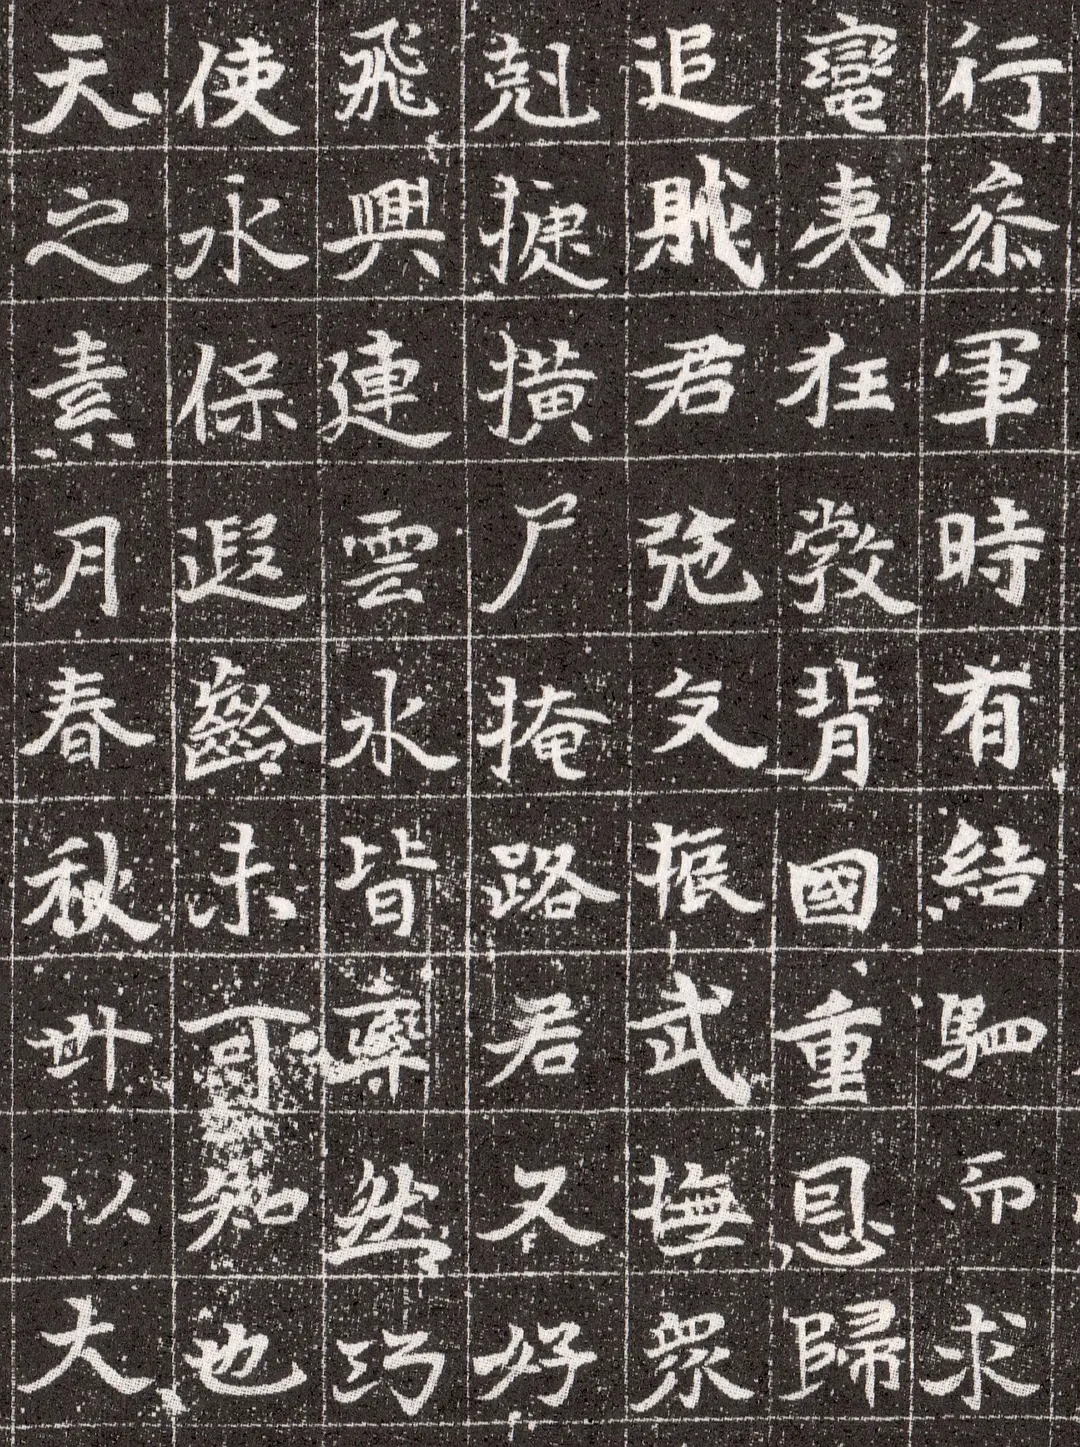 行叅軍時有結駟而求
蠻夷狂背國重恩歸
追賊君弛文振武撫眾
剋捷撗尸掩路君又好
飛興連雲水皆率然巧
使永保遐齡未可知也
天之素月春秋卌以大